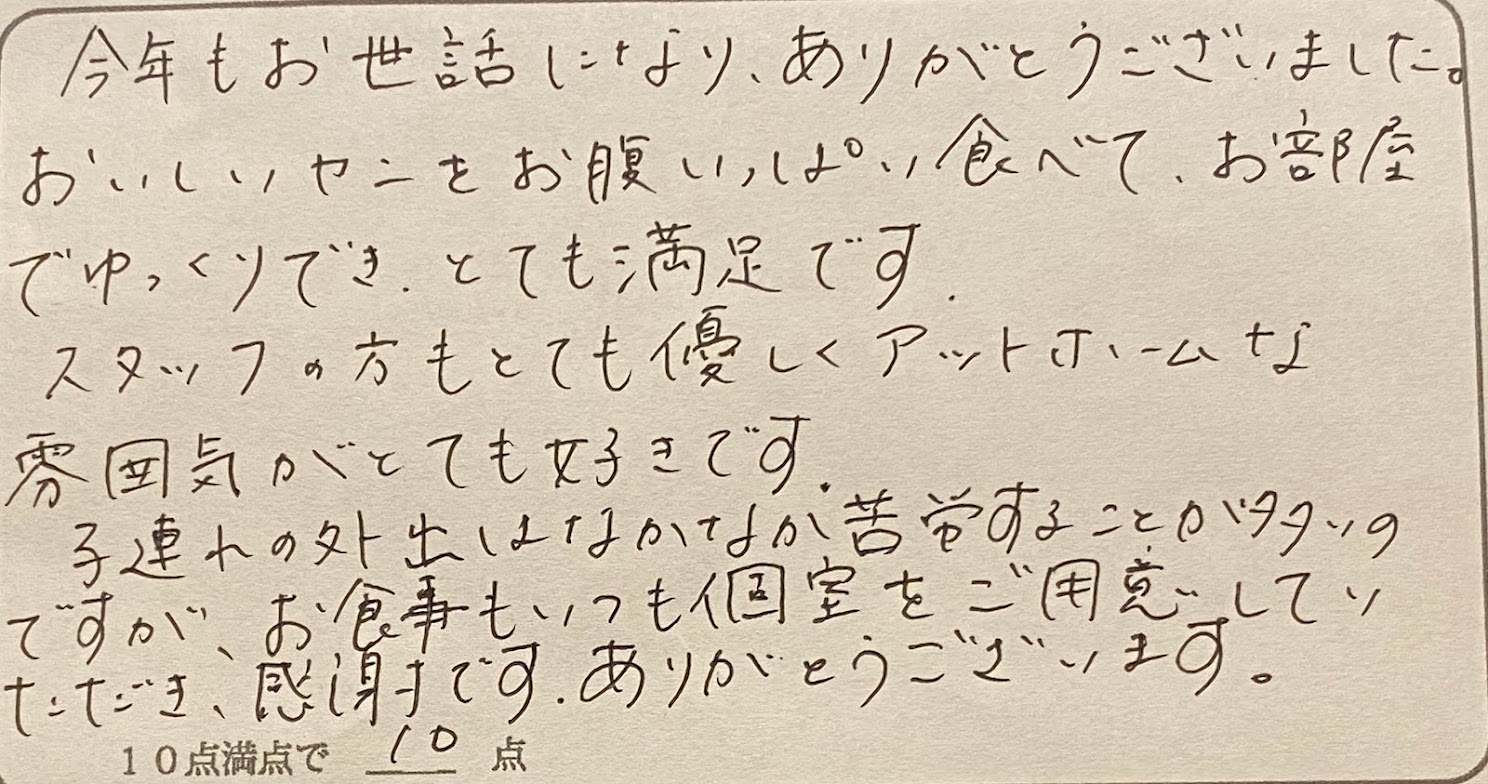 今年もお世話になり、ありがとうございました。
おいしいカニをお腹いっぱい食べて、お部屋
でゆっくりでき、とても満足です.
スタッフの方もとても優しくアットホームな
雰囲気がとても好きです.
子連れの外出はなかなか苦労することが多いの
ですが、お食事もいつも個室をご用意してい
ただき、感謝です.ありがとうございます。
10点満点で 10 点